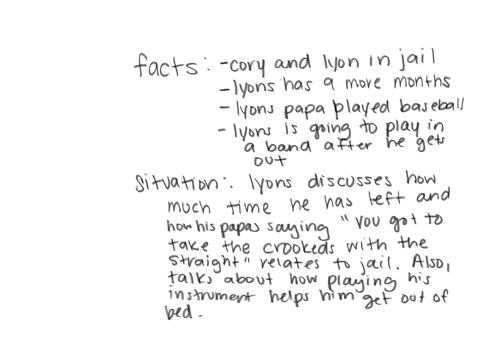 facts: -cory and lyon in jail
-lyons has 9 more months
- lyons papa played baseball
- lyons is going to play in
a band after he gets
out
Situation: lyons discusses how
much time he has left and
how his papas saying "you got to
take the crookeds with the
straight" relates to jail. Also,
talks about how playing his
instrument helps him get out of
bed.